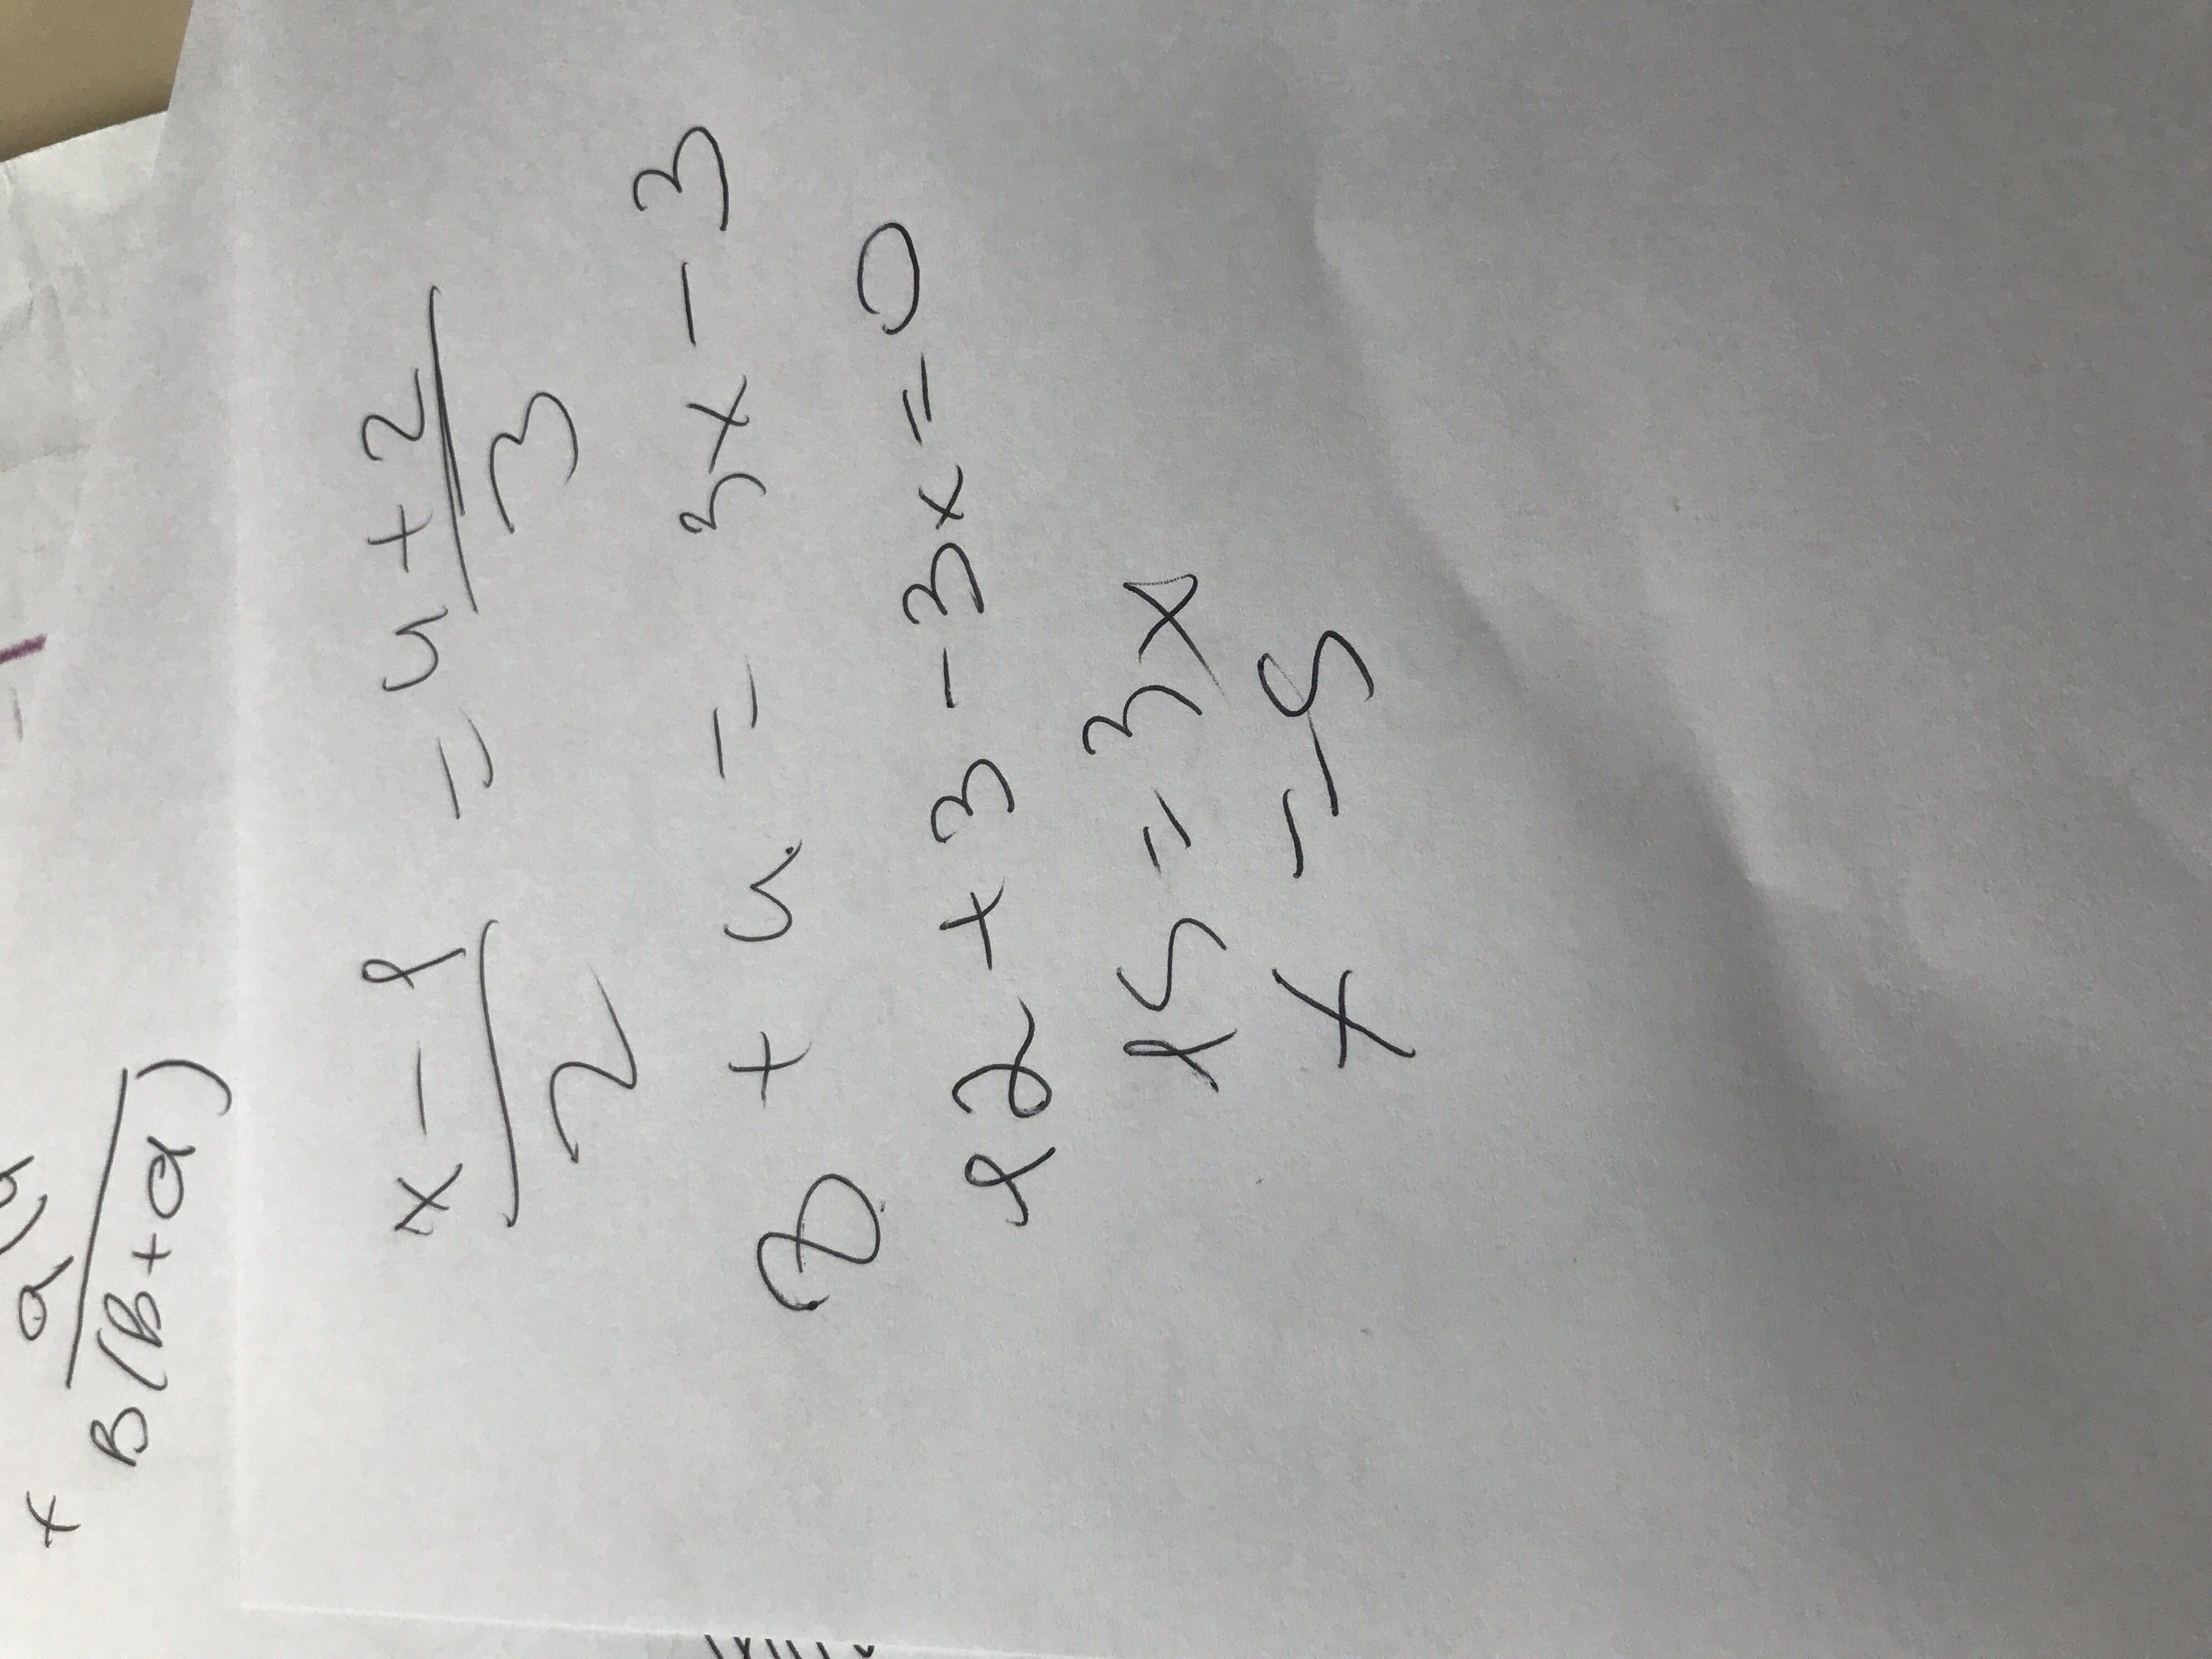 + a
B(B+a)
x-1 = 4+2
2 3
8 + 4 = 3x - 3
12 + 3 - 3x = 0
15 = 3x
x = 5